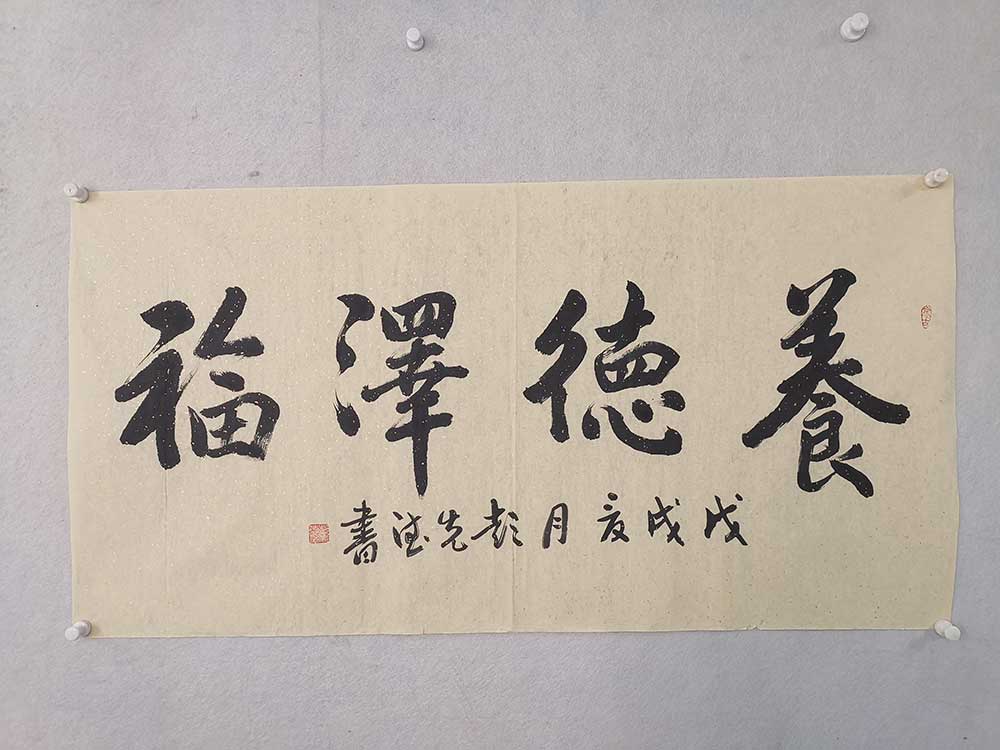 養德澤福
戊戌夏月彭先德書